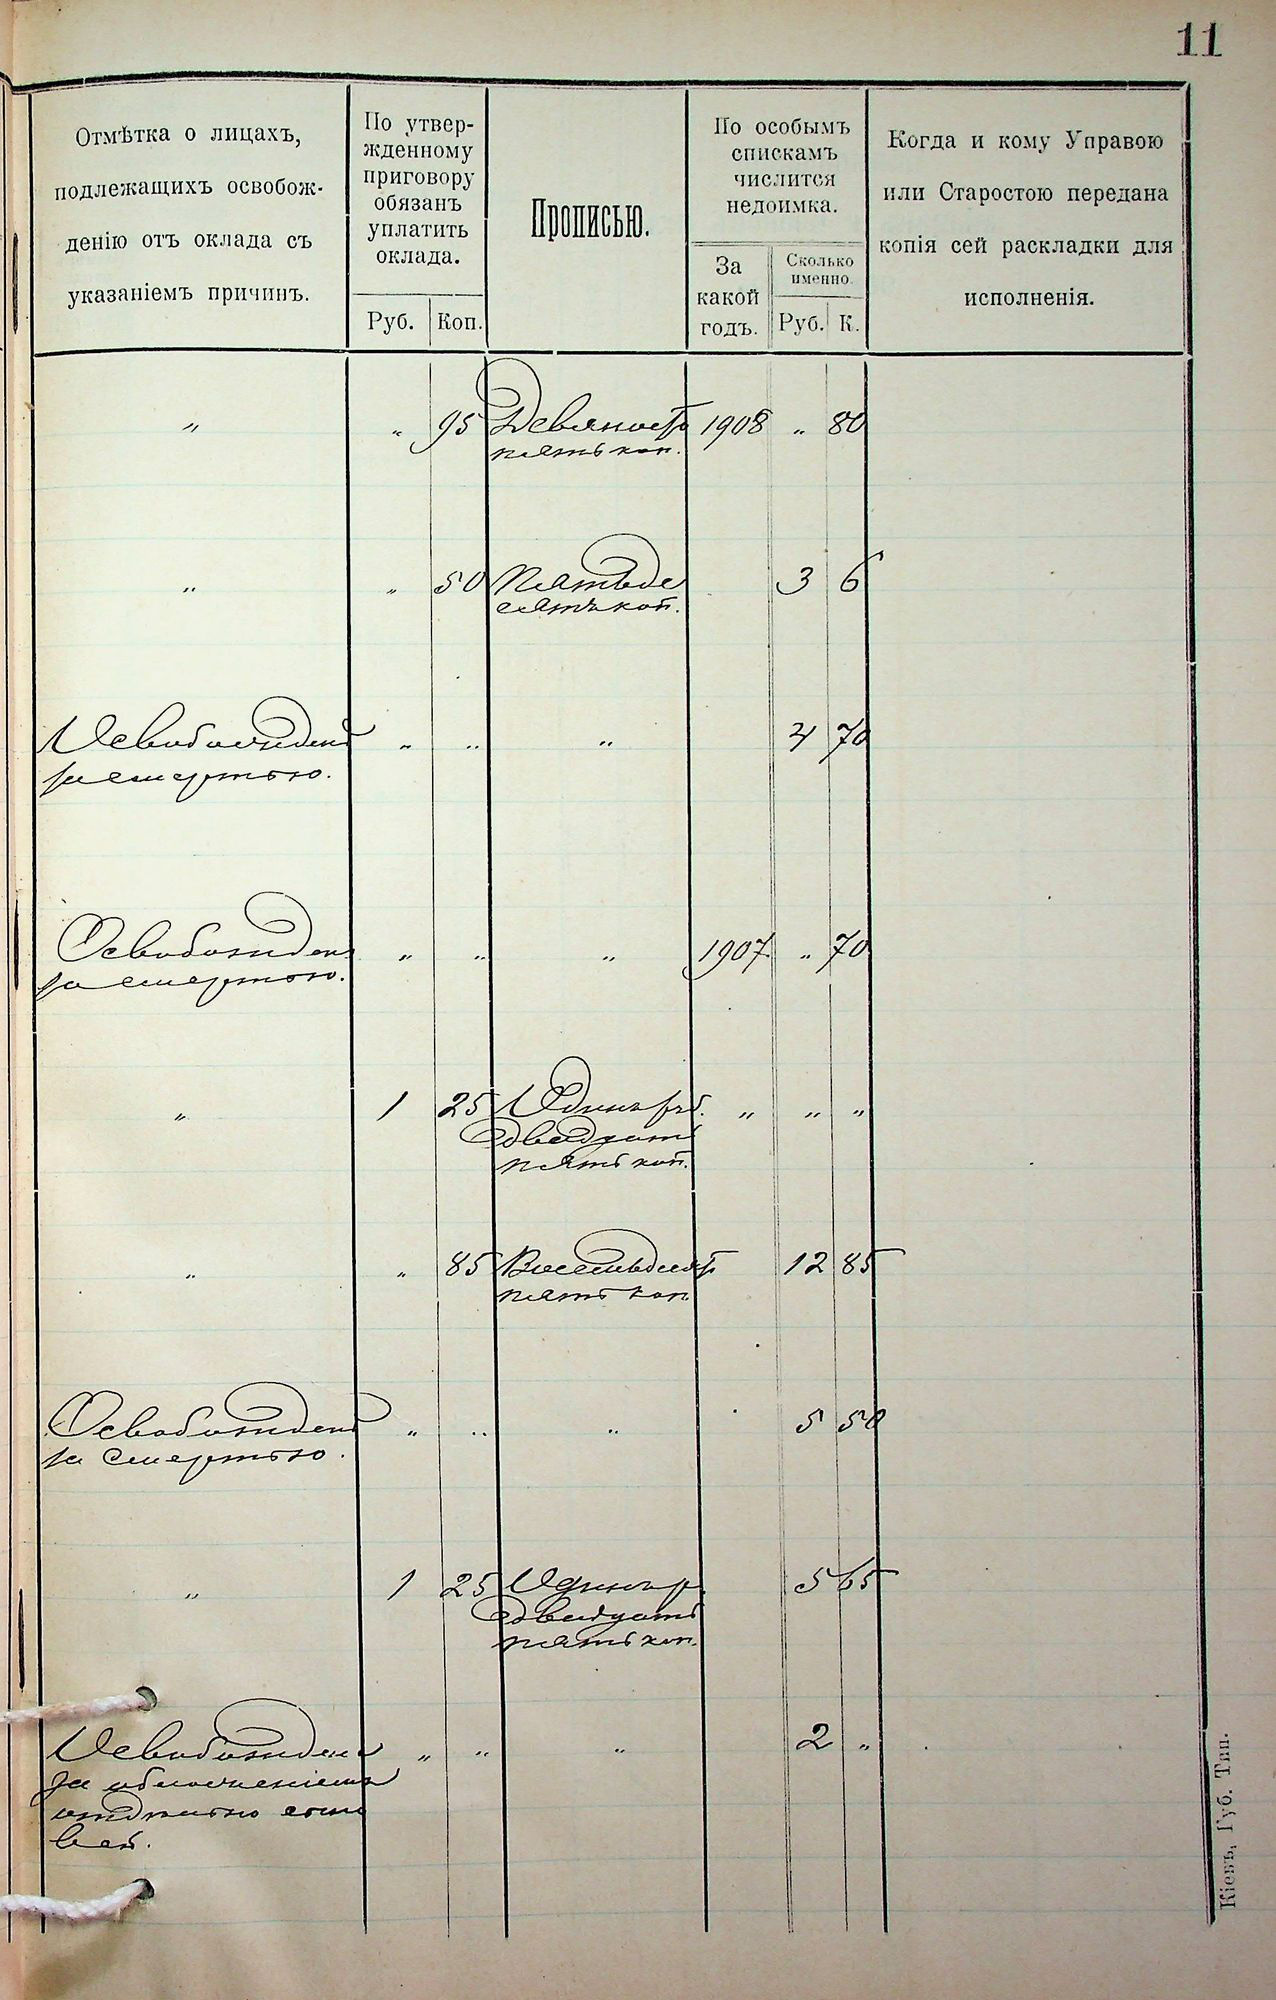 11
Отмѣтка о лицахъ,
подлежащихъ освобож-
денію отъ оклада съ
указаніемъ причинъ.
По утвер-
жденному
приговору
обязанъ
уплатить
оклада.
Руб. Коп.
Прописью.
По особымъ
спискамъ
числится
недоимка.
За
какой
годъ.
Сколько
именно.
Руб. К.
Когда и кому Управою
или Старостою передана
копія сей раскладки для
исполненія.
" " 95 Девяносто 1908 " 80
пять коп.
" " 50 Пятьде 3 6
сятъ коп.
Освобожденъ " " " 4 70
за смертью.
Освобожденъ " " " 1907 " 70
за смертью.
" 1 25 Одинъ руб. " " "
двадцать
пять коп.
" " 85 Восемьдесят 12 85
пять коп
Освобожденъ " " " 5 50
за смертью.
" 1 25 Одинъ р. 5 65
двадцать
пять коп.
Освобожденъ " " " 2 "
за обложеніемъ
отдѣльно сыно
вей.
Кіевъ, Губ. Тип.